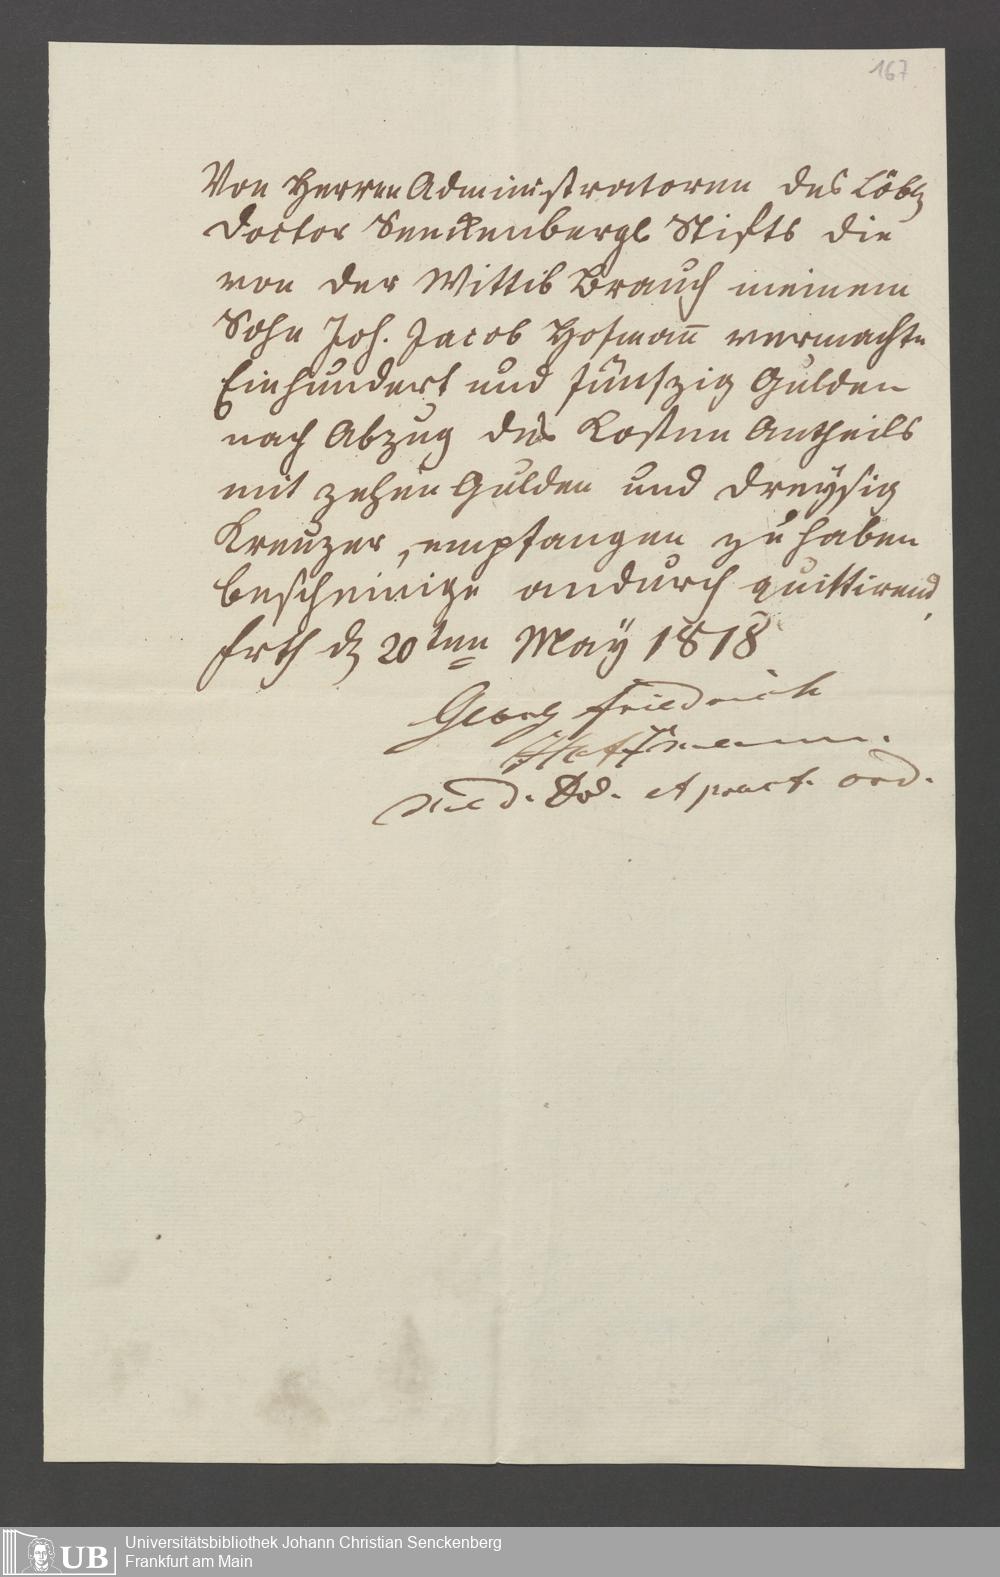 167
Von Herren Administratoren des Löbl
Doctor Senckenbergl Stifts die
von der Wittib Brauch meinem
Sohn Joh. Jacob Hofmañ vermachte
Einhundert und fünfzig Gulden
nach Abzug des Kosten Antheils
mit zehen Gulden und dreysig
Kreuzer, empfangen zu haben
bescheinige andurch quittirend
Frth d 20ten May 1818
Georg Friedrich
Hoffmann.
Med. Dr. et pract. ord.
UB
Universitätsbibliothek Johann Christian Senckenberg
Frankfurt am Main